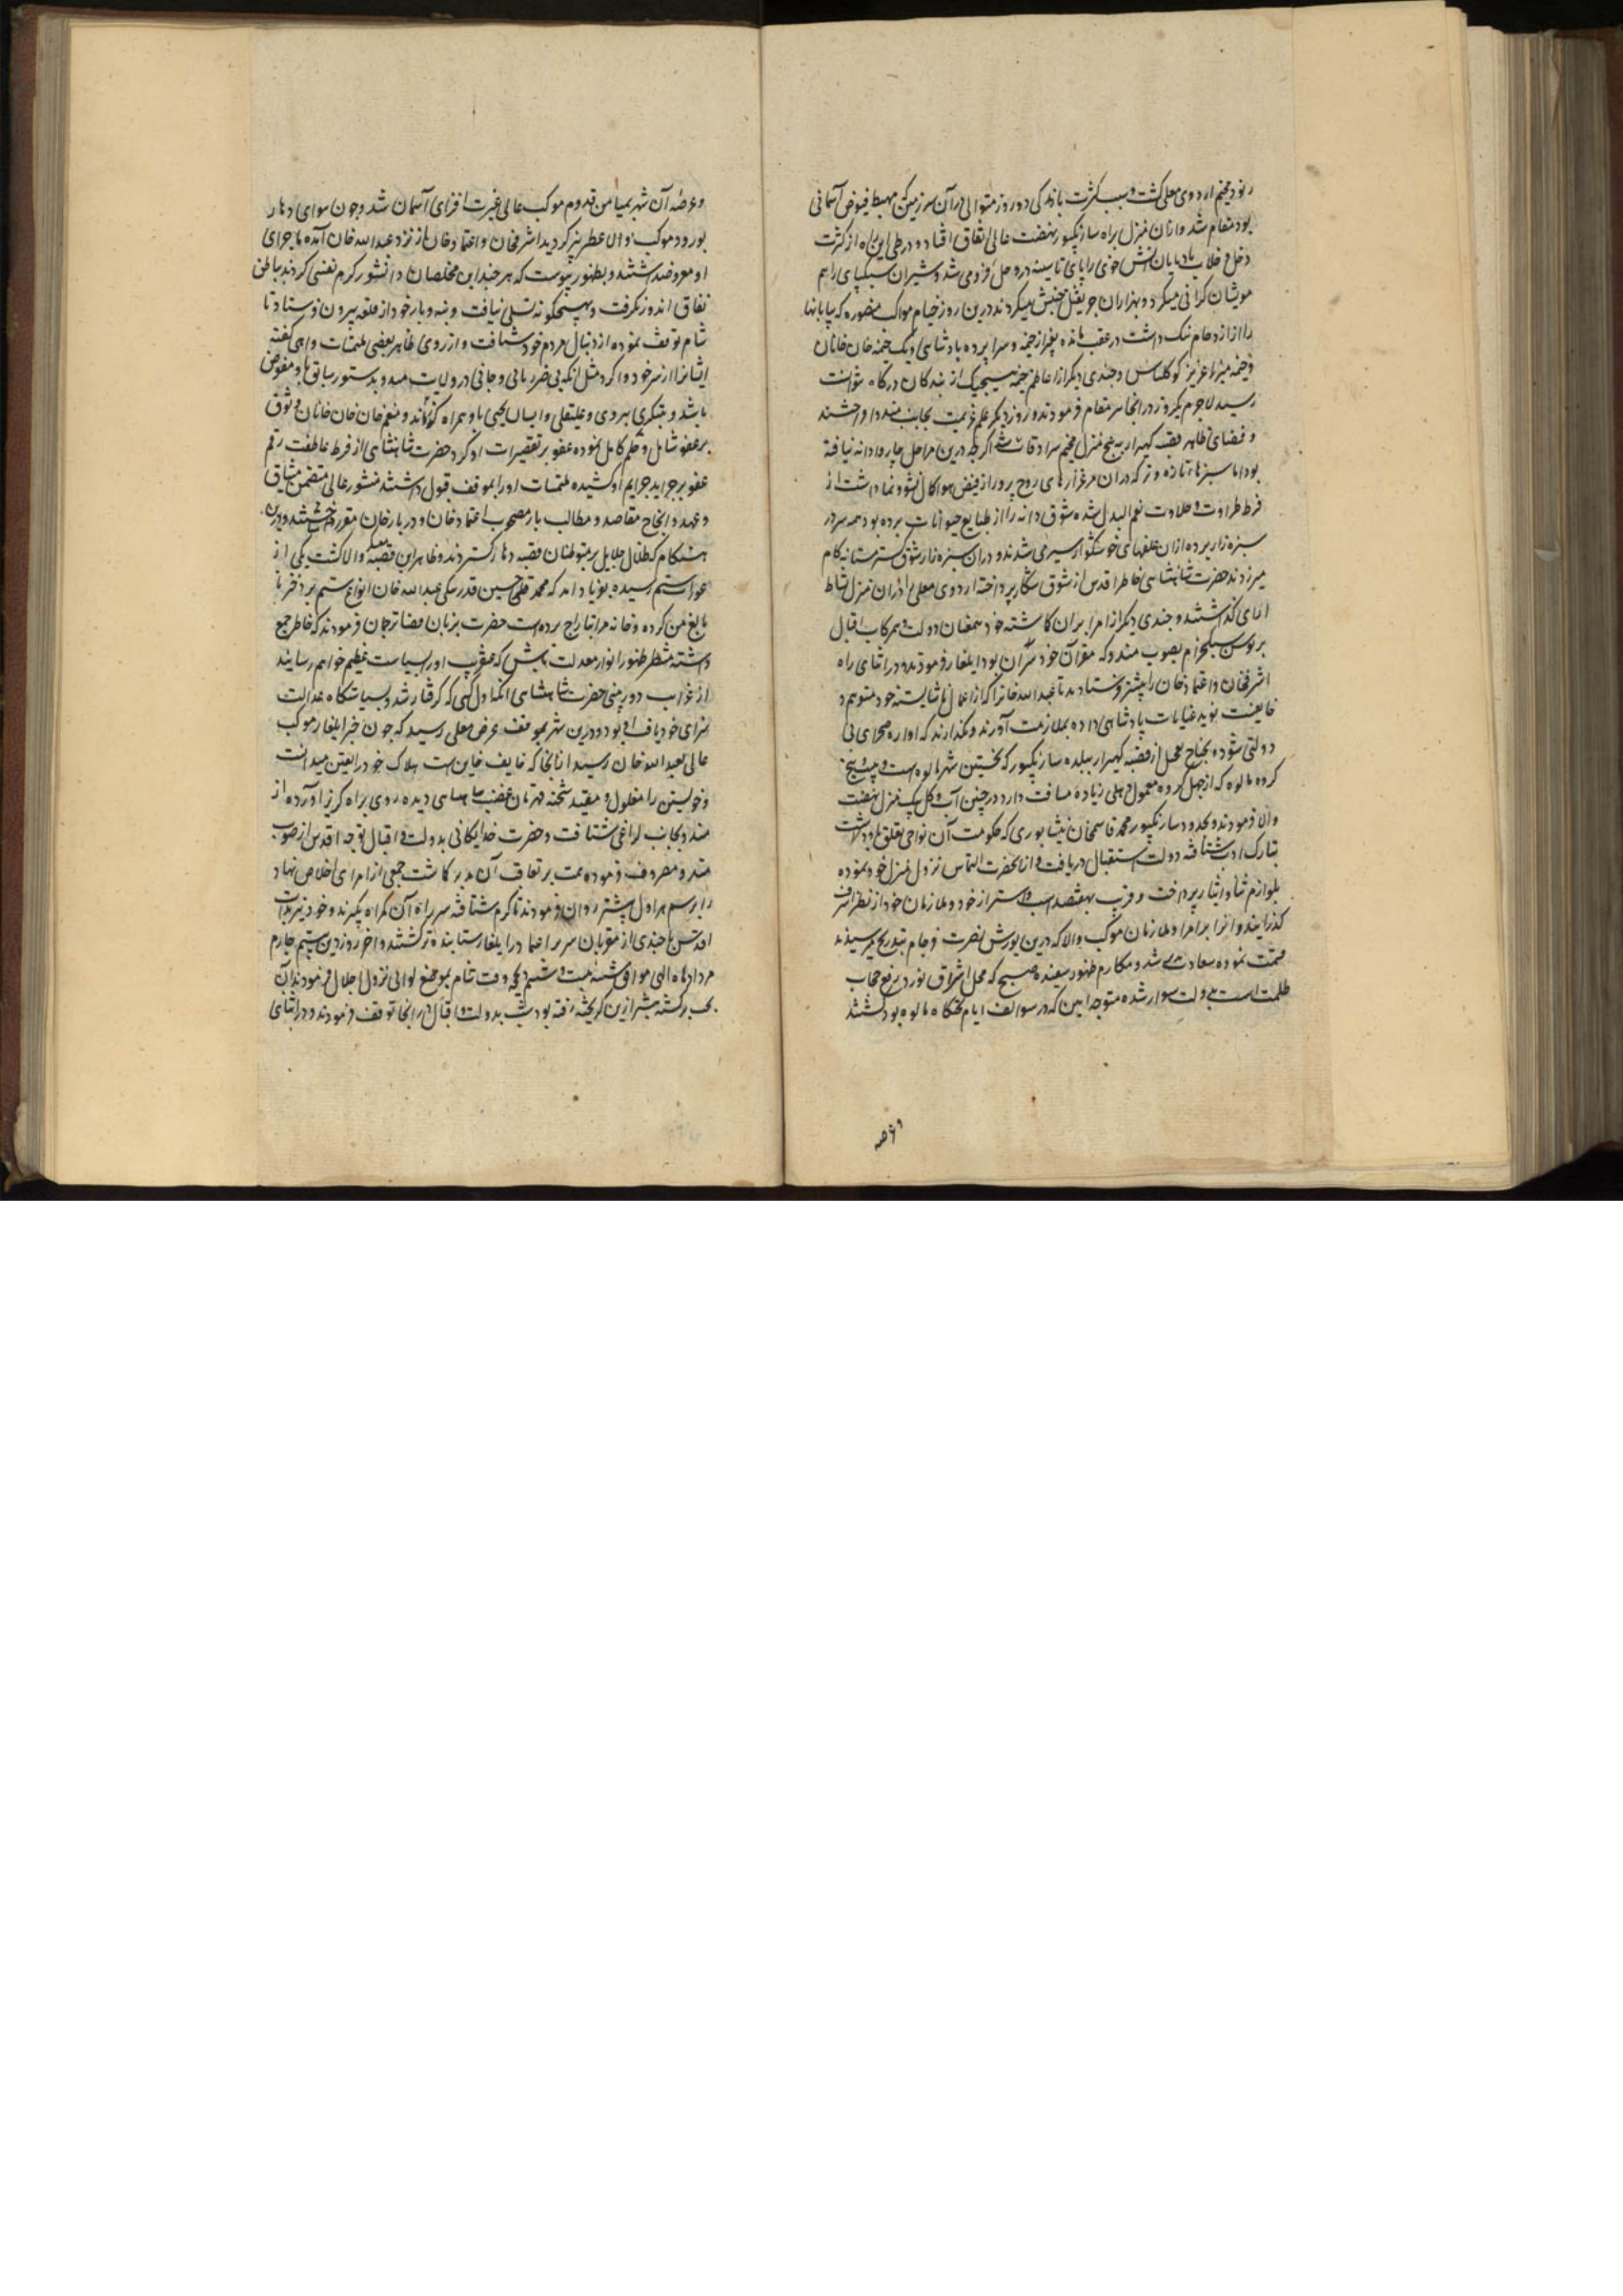 رنود مخیم اردوی معلی کشت و بسبب کثرت بارندکی دو روز متوالی در آن سرزمین که مهبط فیوض آسمانی
بود مقام شد و از ان منزل براه سارنکپور نهضت عالی اتفاق افتاد و در طی این راه از کثرت
وحل و خلاب بادپایان آتش خوی را پای تا سینه در وحل فرو می شد و شیران سبکپای را هم
موی شان کرانی میکرد و بهزاران جر ثقیل جنبش میکردند درین روز خیام مواکب منصوره که بیابانها
را از ازدحام تنک داشت در عقب مانده بغیر از خیمه و سراپرده پادشاهی و یک خیمه خان خانان
و خیمه میرزا عزیز کوکلتاش و چندی دیکر از اعاظم خیمه هیچیک از بندکان درکاه نتوانست
رسید لاجرم یکروز در انجا مقام فرمودند و روز دیکر علم عزیمت بجانب مندو افراشتند
و فضای ظاهر قصبه کهرار به پنج منزل مخیم سرادقات شد اکرچه درین مراحل چاروا دانه نیافته
بود اما سبزهای تازه و تر که در ان مرغزارهای روح پرور از فیض هوا کمال نشو و نما داشت از
فرط طراوت و حلاوت نعم البدل شده شوق دانه را از طبایع حیوانات برده بود همه سر در
سبزه زار برده از ان علفهای خوشکوار سیر می شدند و در ان سبزه زار شوق مستانه کام
میزدند حضرت شاهنشاهی خاطر اقدس از شوق شکار پرداخته اردوی معلی را در ان منزل نشاط
افزای کذاشتند و چندی دیکر از امرا بر ان کماشته خود بهمعنان دولت و همرکاب اقبال
بر توسن سبکخرام بصوب مندو که مقر آن خود سران بود ایلغار فرمودند و در اثنای راه
اشرفخان و اعتمادخان را پیشتر فرستادند تا عبدالله خانرا که از اعمال ناشایسته خود متوهم و
خایفست بنوید عنایات پادشاهی داده بملازمت آورند و نکذارند که اواره صحرای بی
دولتی شود و بجناح تعجیل از قصبه کهرار ببلده سارنکپور که نخستین شهر مالوه است و بیست و پنج
کروه مالوه که از چهل کروه معمول دهلی زیاده مسافت دارد در چنین آب و کل بیک منزل نهضت
والا فرمودند و بحدود سارنکپور محمد قاسمخان نیشابوری که حکومت آن نواحی تعلق باو داشت
بتارک ادب شتافته دولت استقبال دریافت و از انحضرت التماس نزول منزل خود نموده
بلوازم نثار و ایثار پرداخت و قریب بهفتصد اسب و استر از خود و ملازمان خود از نظر اشرف
کذرانید و انرا بر امرا و ملازمان موکب والا که درین یورش نصرت فرجام بتدریج میرسیدند
قسمت نموده سعادت مند شد و مکارم ظهور سفیده صبح که محل اشراق نور و رفع حجاب
ظلمت است بدولت سوار شده متوجه اجین که در سوالف ایام تختکاه مالوه بود کشتند
۹ صه
و عرصه آن شهر بمیامن قدوم موکب عالی غیرت افزای آسمان شد و چون سوای دهار
بورود موکب والا عطر بیز کردید اشرفخان و اعتمادخان از نزد عبدالله خان آمده ماجرای
او معروض داشتند و بظهور پیوست که هر چند این مخلصان دانشور کرم نفسی کردند بباطن
نفاق اندوز نکرفت و بهیچکونه تسلی نیافت و بنه و بار خود از قلعه بیرون فرستاد تا
شام توقف نموده از دنبال مردم خود شتافت و از روی ظاهر بعضی ملتمسات واهی کفته
ایشانرا از سر خود وا کرد مثل آنکه بی ضرر مالی و جانی در ولایت مندو بدستور سابق باو مفوض
باشد و بتکری بردی و علیقلی و ایسان یحیی باو همراه کردانند و منعم خان خان خانان وثوق
بر عفو شامل و حلم کامل نموده عفو بر تقصیرات او کرد حضرت شاهنشاهی از فرط عاطفت رقم
عفو بر جراید جرایم او کشیده ملتمسات او را بموقف قبول داشتند منشور عالی متضمن میثاق
و عهد و انجاح مقاصد و مطالب باز مصحوب اعتمادخان و دربارخان مقرر داشتند و درین
هنکام که ظلال جلایل بر متوطنان قصبه دهار کستردند و ظاهر این قصبه معسکر والا کشت یکی از
عورات ستم رسیده بفریاد امد که محمد قلی حسین قدر ملکی عبدالله خان انواع ستم بر دختر نا
بالغ من کرده و خانه مرا بتاراج برده است حضرت بزبان قضا ترجمان فرمودند که خاطر جمع
داشته منتظر ظهور انوار معدلت باش که عنقریب او را بسیاست عظیم خواهم رسانید
از غرایب دوربینی حضرت شاهنشاهی آنکه اول کسی که کرفتار شد و بسیاستکاه عدالت
سزای خود یافت او بود و درین شهر بموقف عرض معلی رسید که چون خبر ایلغار موکب
عالی بعبدالله خان رسید از انجا که خایف خاین است هلاک خود را یقین میدانست
و خویشتن را مغلول و مقید شحنه قهرمان غضب شاهنشاهی دیده روی براه کریز آورده از
مندو بجانب لوانی شتافت و حضرت خدایکانی بدولت و اقبال توجه اقدس از صوب
مندو مصروف فرموده همت بر تعاقب آن مدبر کماشت جمعی از امرای اخلاص نهاد
را برسم هراول پیشتر روان فرمودند تا کرم شتافته سر راه آن کمراه بکیرند و خود نیز بذات
اقدس با چندی از مقربان سریر اعتماد در ایلغار شتابنده تر کشتند و اخر روز دین بیست و چهارم
مرداد ماه الهی موافق شنبه بیست و ششم ذی حجه وقت شام بموضع لوانی نزول اجلال فرمودند آن
بخت برکشته پیشتر ازین کریخته رفته بود شب بدولت و اقبال در انجا توقف فرمودند و در اثنای